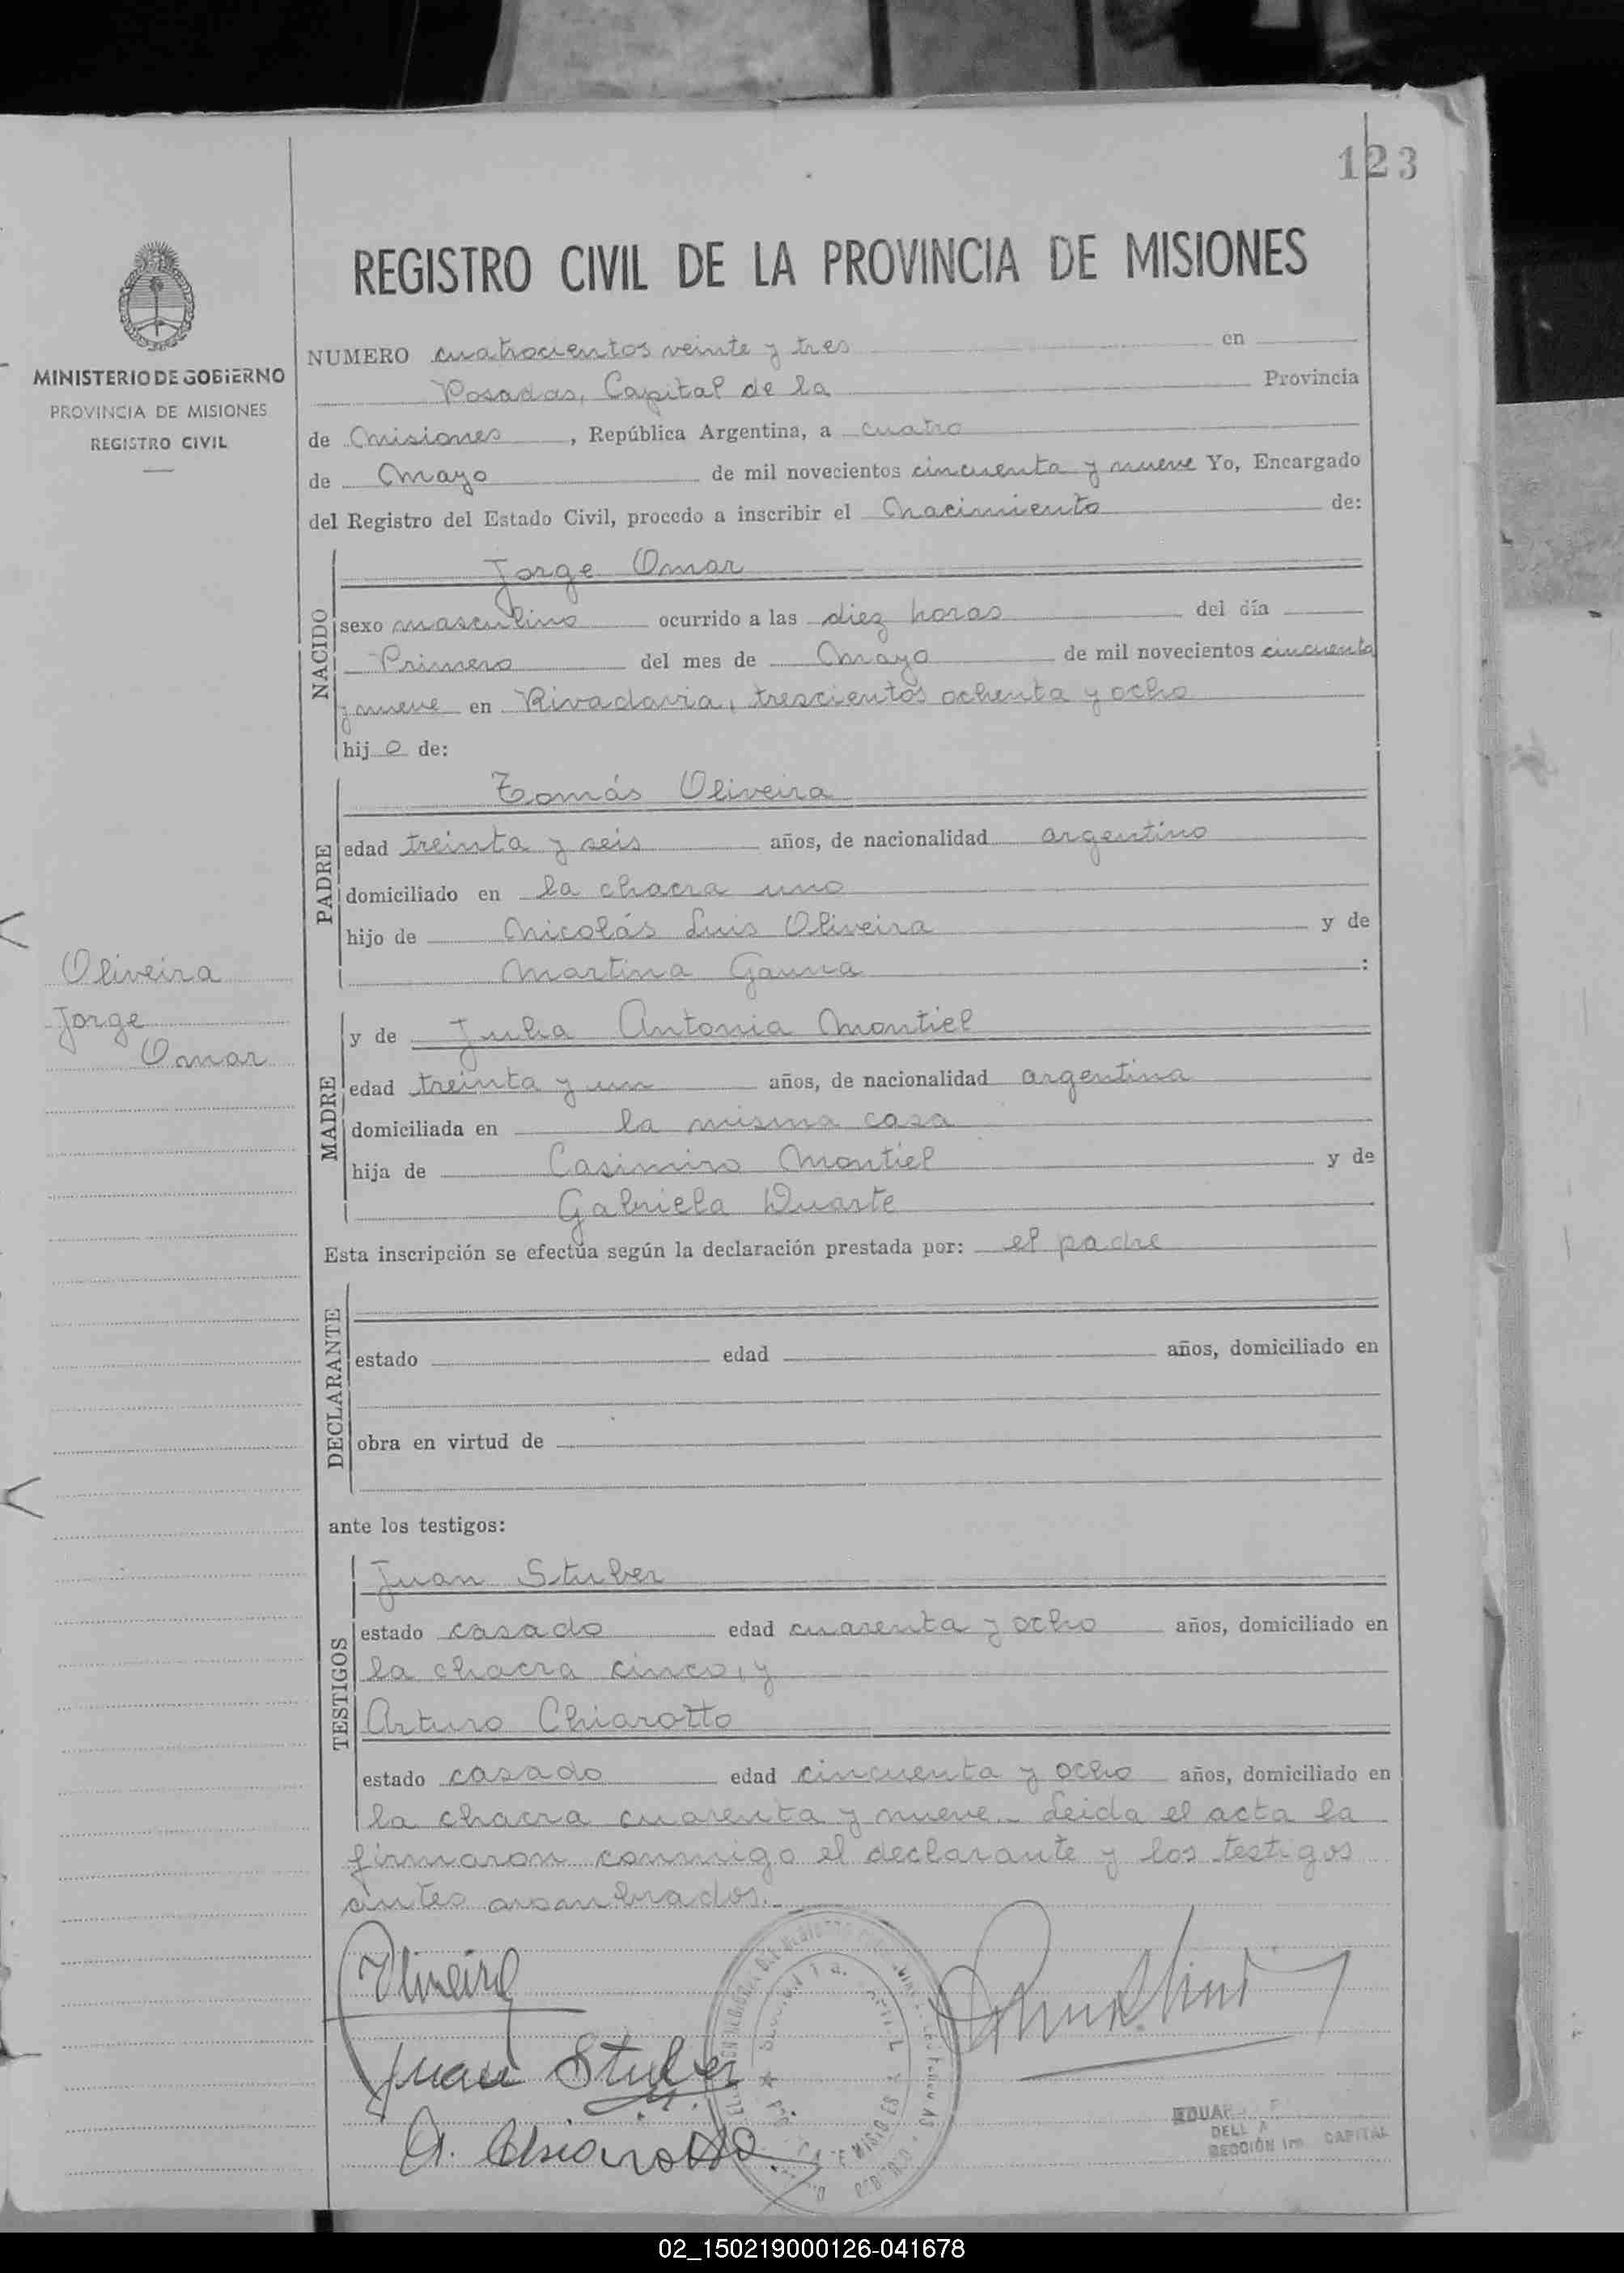 123
REGISTRO CIVIL DE LA PROVINCIA DE MISIONES
MINISTERIO DE GOBIERNO
PROVINCIA DE MISIONES
REGISTRO CIVIL
NUMERO cuatrocientos veinte y tres en
Posadas, Capital de la Provincia
de Misiones, República Argentina, a cuatro
de Mayo de mil novecientos cincuenta y nueve Yo, Encargado
del Registro del Estado Civil, procedo a inscribir el Nacimiento de:
NACIDO
Jorge Omar
sexo masculino ocurrido a las diez horas del día
Primero del mes de Mayo de mil novecientos cincuenta
y nueve en Rivadavia, trescientos ochenta y ocho
hij o de:
PADRE
Tomás Oliveira
edad treinta y seis años, de nacionalidad argentino
domiciliado en la chacra uno
hijo de Nicolás Luis Oliveira y de
Martina Gauna :
Oliveira
Jorge
Omar
MADRE
y de Julia Antonia Montiel
edad treinta y un años, de nacionalidad argentina
domiciliada en la misma casa
hija de Casimiro Montiel y de
Gabriela Duarte
Esta inscripción se efectúa según la declaración prestada por: el padre
DECLARANTE
estado edad años, domiciliado en
obra en virtud de
ante los testigos:
TESTIGOS
Juan Stuber
estado casado edad cuarenta y ocho años, domiciliado en
la chacra cinco, y
Arturo Chiarotto
estado casado edad cincuenta y ocho años, domiciliado en
la chacra cuarenta y nueve.. Leida el acta la
firmaron conmigo el declarante y los testigos
antes nombrados.
Oliveira
Juan Stuber
A. Chiarotto
SECCIÓN 1ra CAPITAL
02_150219000126-041678